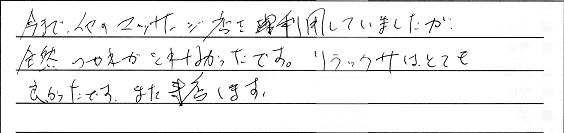 今まで、人やのマッサージ店を利用していましたが、
全然つかれがとれなかったです。リラックサは、とても
良かったです。また来店します。